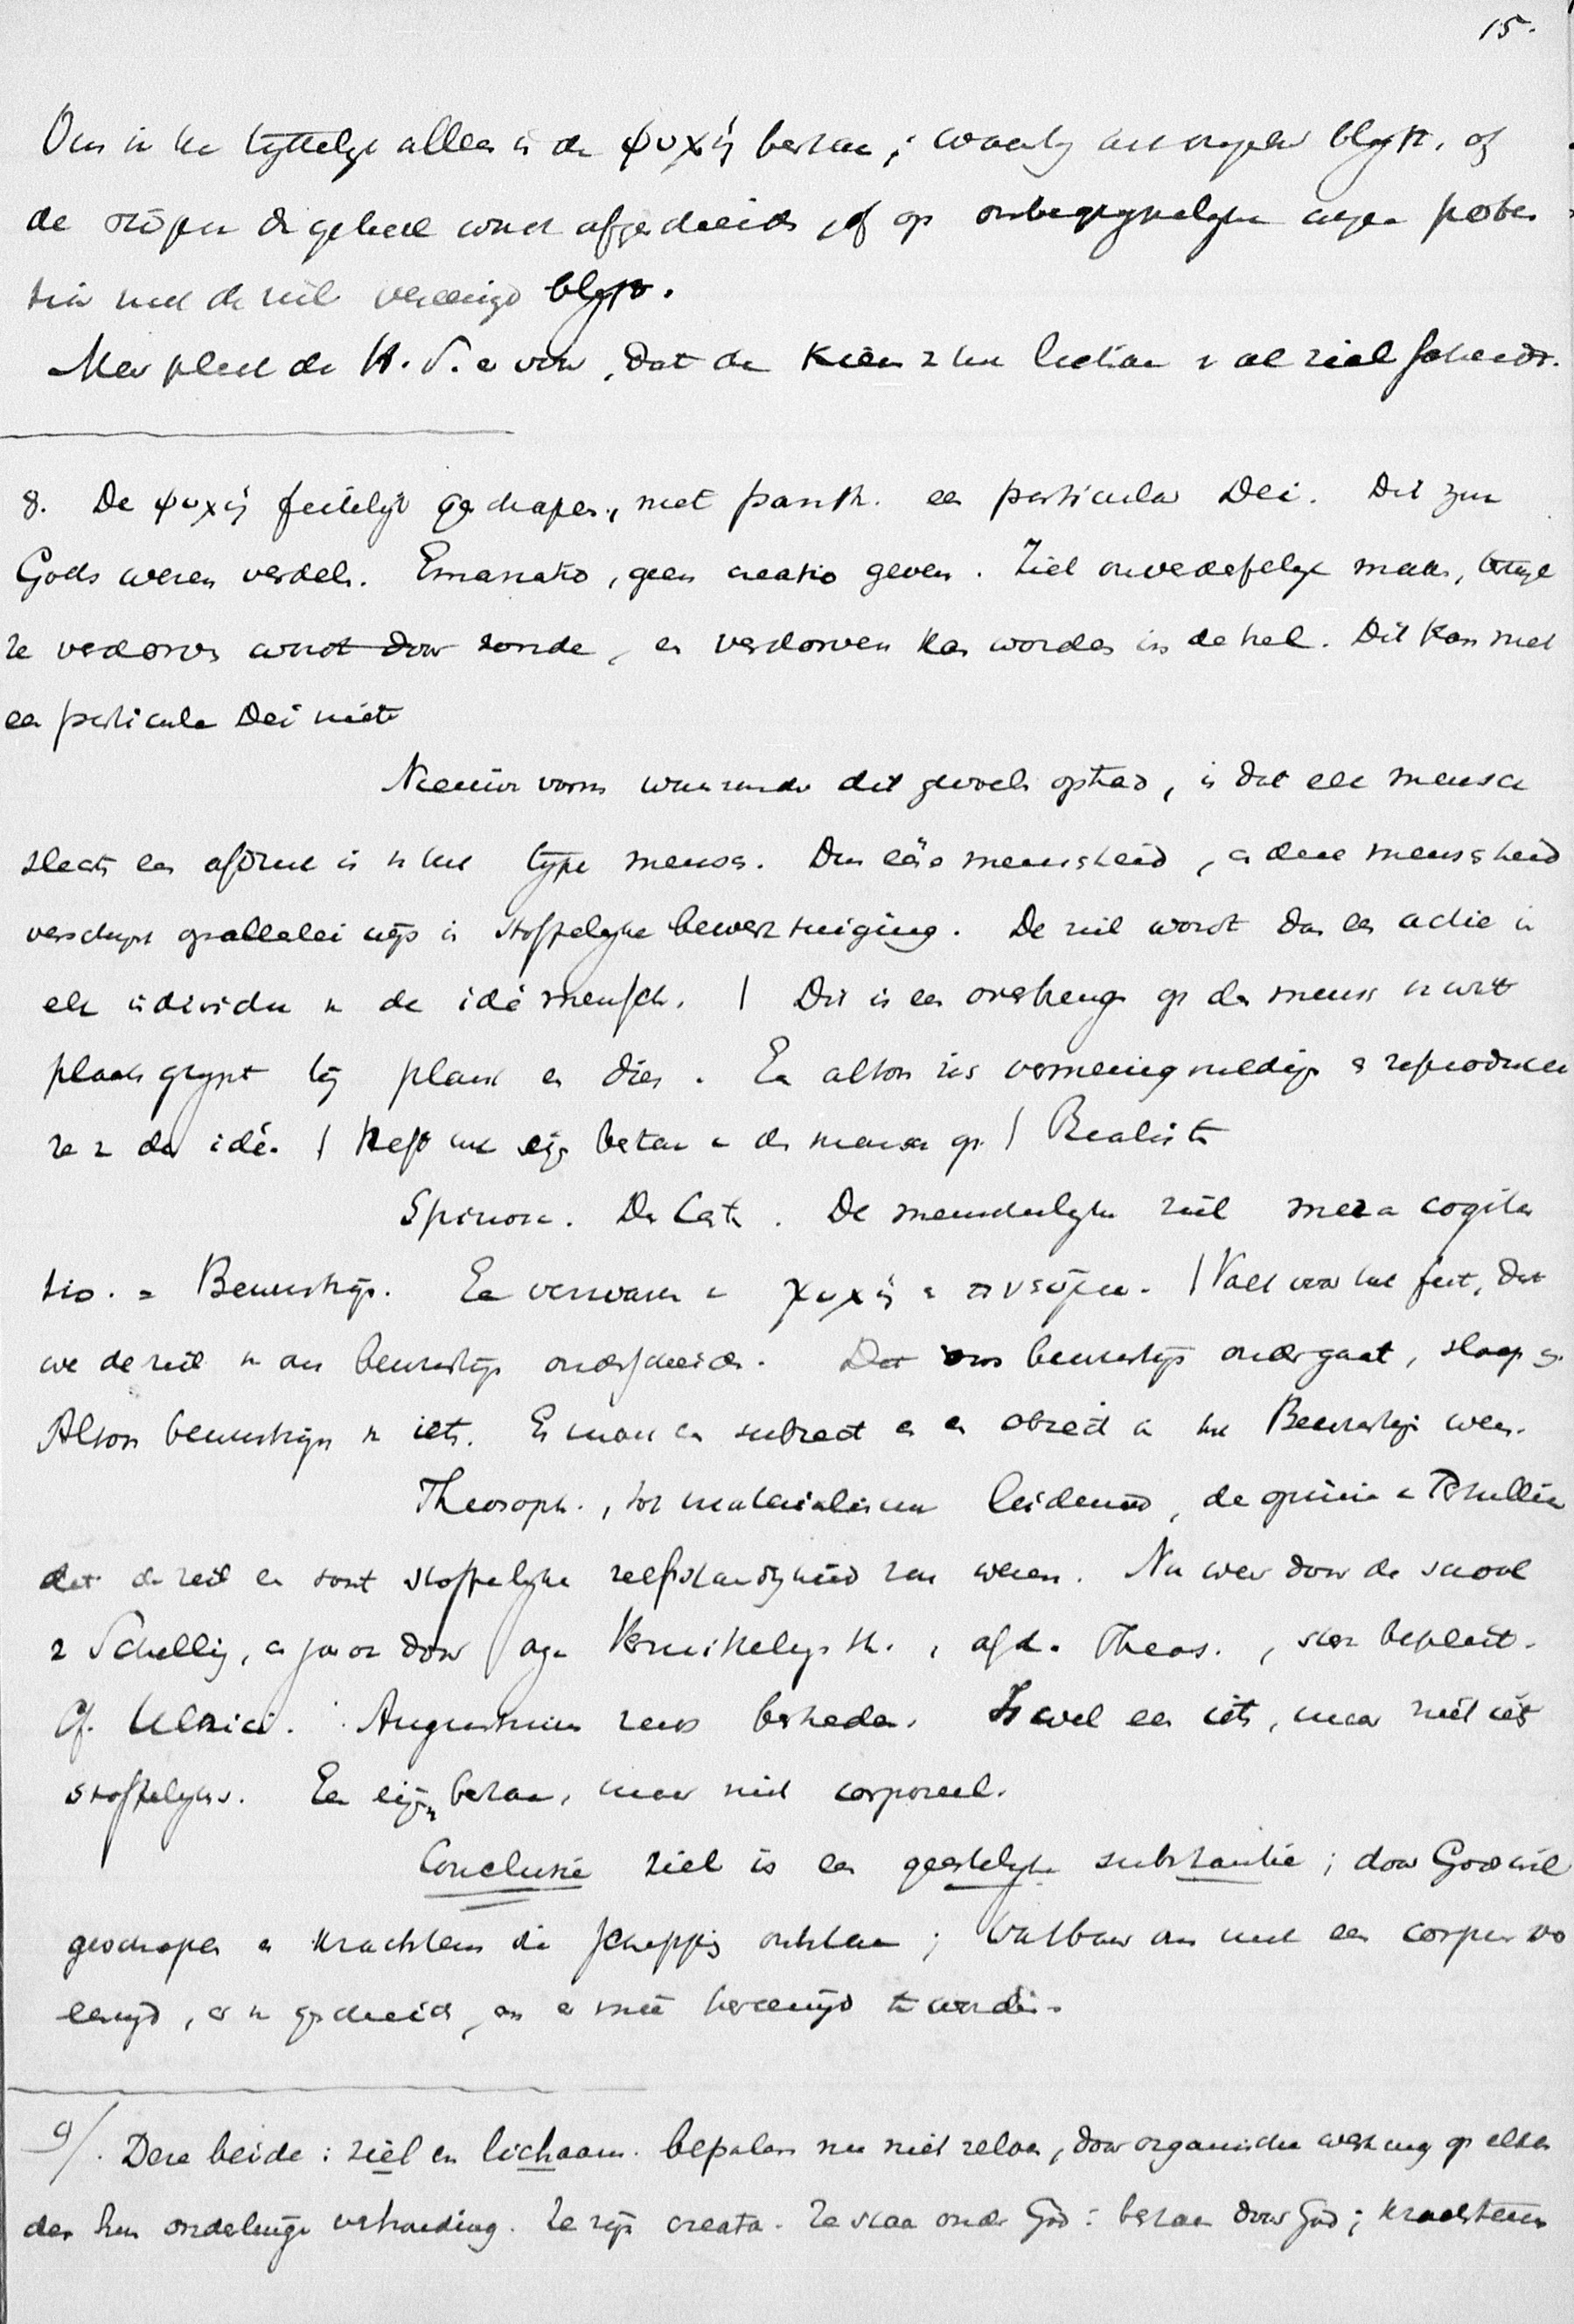 15.
alleen in de ψυχή bestaan; blijft, of
de geheel wordt afgescheiden, of op onbegrijpelijke wijze
met de ziel vereenigd blijft.
Men pleit de H.S. er voor, dat de het lichaam ziel scheidt.
8. De ψυχή feitelijk geschapen, niet panth. een particula Dei. Dit zou
Gods wezen verdeelen. Emanatio, geen creatio geven. Ziel onverderfelijk maken, terwijl
ze verdorven wordt door zonde, en verdorven kan worden in de hel. Dit kan met
een particula Dei niet
Nieuwe vorm waaronder dit gevoelen optrad, is dat elk mensch
slechts een afdruk is v het type mensch. Den één menschheid, en deze menschheid
verschijnt op allerlei wijs in stoffelijke bewerktuiging. De ziel wordt dan een actie in
elk individu v de idé mensch. | Dit is een overbrengen op den mensch v wat
plaats grijpt bij plant en dier. En alzoo zich vermenigvuldigen en reproduceren
ze v de idé. | Heft het eigen bestaan v de mensch op. | Realist
Spinoza. De Cart. De menschelijke ziel mera cogita
tio. = Bewustzijn. Een verwarren v ψυχή en πνεῦμα. | Valt voor het feit, dat
we de ziel v ons bewustzijn onderscheiden. Dat ons bewustzijn ondergaat, slaap
Alzoo bewustzijn v iets. Er moet een subject en een object in het Bewustzijn wezen.
Theosoph., tot materialisme leidend, de opinie v Tertullian
dat de ziel een soort stoffelijke zelfstandigheid zou wezen. Nu weer door de school
v Schelling, en door, afd. Theos., sterk bepleit.
Cf. Ulrici. Augustinus reeds bestreden. Is wel een iets, maar niet iets
stoffelijks. Een eigen bestaan, maar niet corporeel.
Conclusie ziel is een geestelijke substantie; door God uit
geschapen en krachtens die schepping ontstaan; vatbaar om met een corpus ver
eenigd, er v gescheiden, en er mee hereenigd te worden.
9/. Deze beide: ziel en lichaam. bepalen nu niet zelve, door organische werking op elkan
der hun onderlinge verhouding. Ze zijn creata. Ze staan onder God: bestaan door God; krachtens